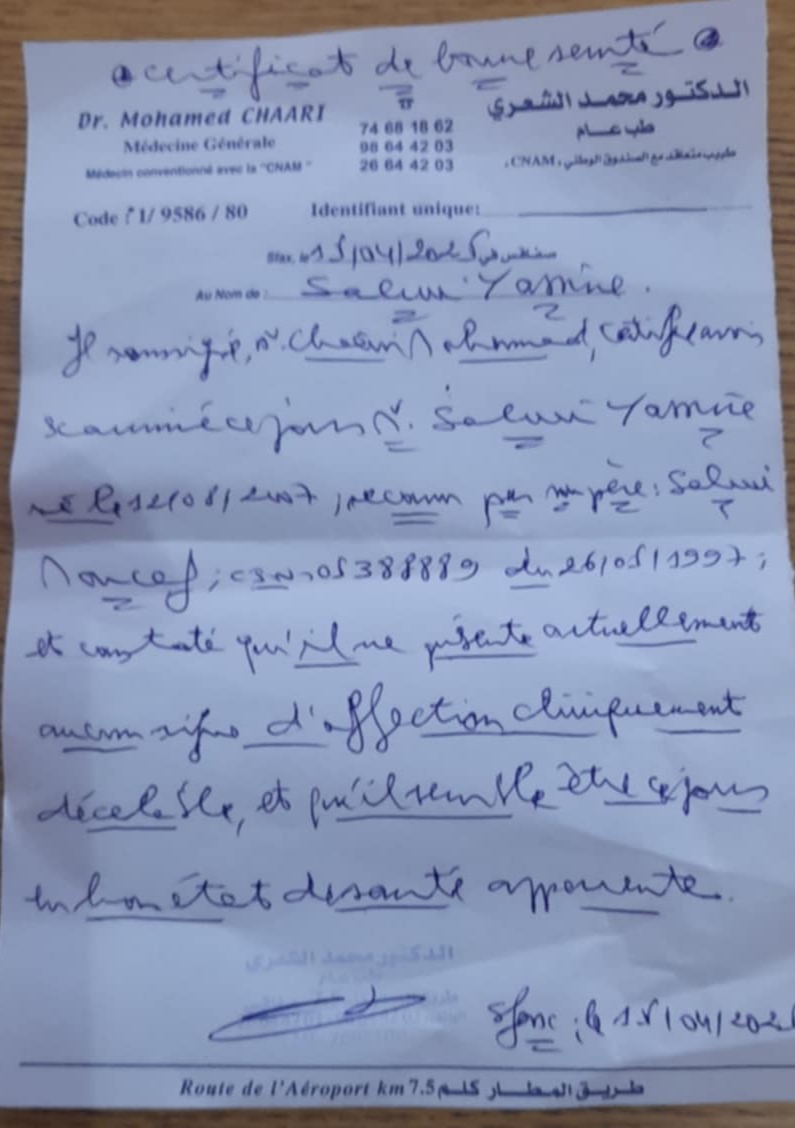 certificat de bonne santé
Dr. Mohamed CHAARI
Médecine Générale
Médecin conventionné avec la "CNAM"
74 68 18 62
98 64 42 03
26 64 42 03
الدكتور محمد الشعري
طب عام
طبيب متعاقد مع الصندوق الوطني "CNAM"
Code : 1/ 9586 / 80
Identifiant unique:
Sfax, le 15/04/2025 صفاقس في
Au Nom de : Salmi Yassine.
Je soussigné, Dr. Chaari Mohammed, certifie avoir
examiné ce jour Mr. Salmi Yassine
né le 12/08/2007, reconnu par son père: Salmi
Moncef; CIN 05388889 du 26/05/1997;
et constaté qu'il ne présente actuellement
aucun signe d'affection cliniquement
décelable, et qu'il semble être ce jour
en bon état de santé apparente.
الدكتور محمد الشعري
طب عام
Sfax, le 15/04/202
Route de l'Aéroport km 7.5 طريق المطار كلم